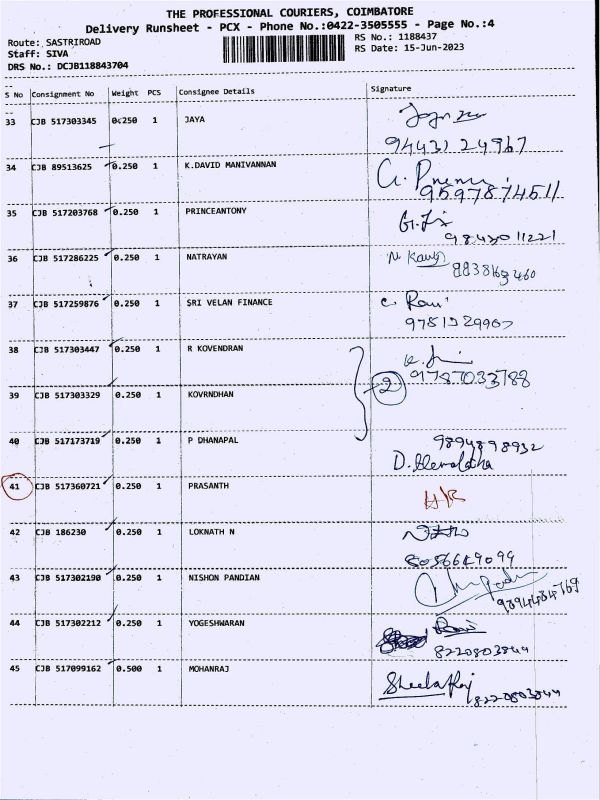 THE PROFESSIONAL COURIERS, COIMBATORE
Delivery Runsheet - PCX - Phone No.:0422-3505555 - Page No.:4
Route: SASTRIROAD RS No.: 1188437
Staff: SIVA RS Date: 15-Jun-2023
DRS No.: DCJB118843704
S No Consignment No Weight PCS Consignee Details Signature
33 CJB 517303345 0.250 1 JAYA
94431 24967
34 CJB 89513625 0.250 1 K.DAVID MANIVANNAN
9597874511
35 CJB 517203768 0.250 1 PRINCEANTONY
9843011221
36 CJB 517286225 0.250 1 NATRAYAN
8838163460
37 CJB 517259876 0.250 1 SRI VELAN FINANCE C. Ravi
38 CJB 517303447 0.250 1 R KOVENDRAN
9787033788
39 CJB 517303329 0.250 1 KOVRNDHAN 2
40 CJB 517173719 0.250 1 P DHANAPAL 9894898932
41 CJB 517360721 0.250 1 PRASANTH
42 CJB 186230 0.250 1 LOKNATH N
8056649099
43 CJB 517302190 0.250 1 NISHON PANDIAN
9894484769
44 CJB 517302212 0.250 1 YOGESHWARAN Ravi
8220803844
45 CJB 517099162 0.500 1 MOHANRAJ SheelaRaj
8220803844